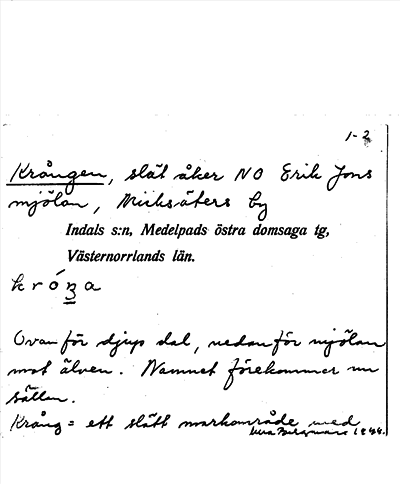 1-2
Krången, slät åker NO Erik Jons
mjölan, Micksäters by
Indals s:n, Medelpads östra domsaga tg,
Västernorrlands län.
Ovanför djup dal, nedanför mjölan
mot älven. Namnet förekommer nu
sällan.
Krång = ett slätt markområde med
1944.